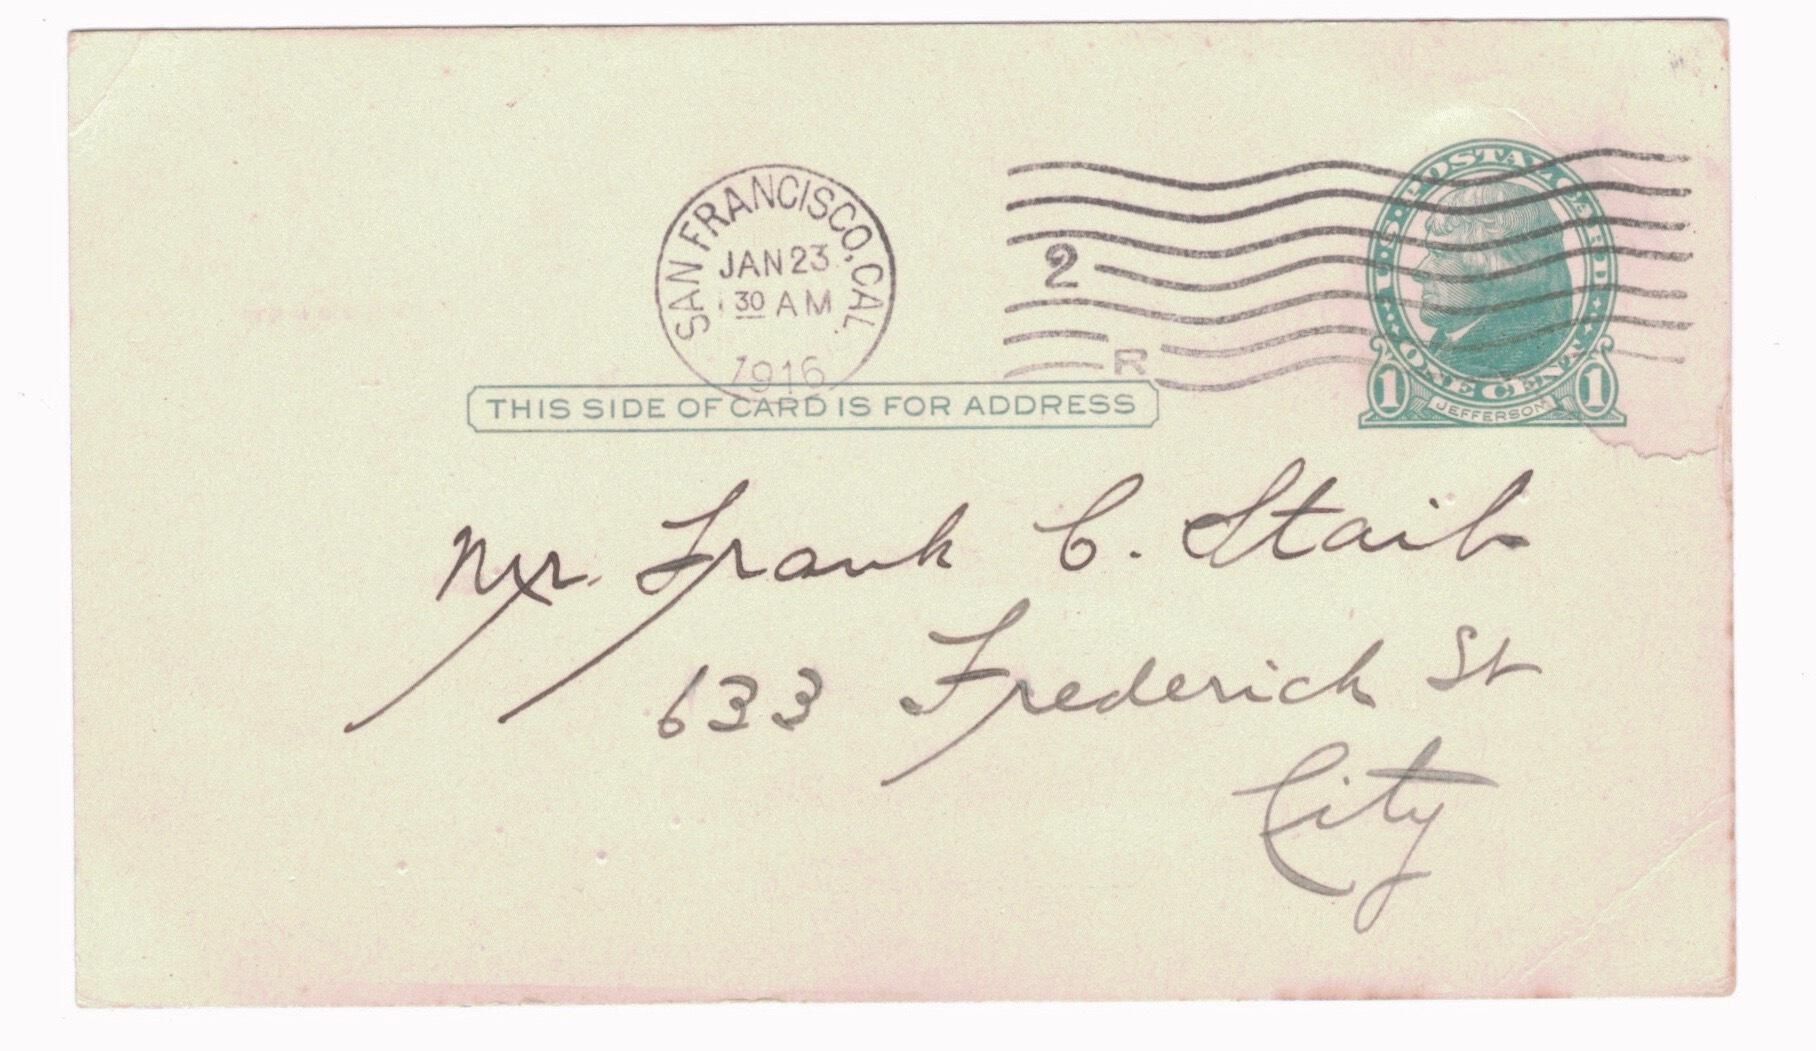 SAN FRANCISCO, CAL.
JAN 23
30 AM
1916
2
R
U.S. POSTAL CARD
ONE CENT
1 JEFFERSON 1
THIS SIDE OF CARD IS FOR ADDRESS
Mr. Frank C. Staib
633 Frederick St
City